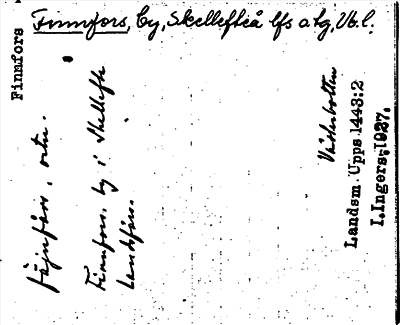 Finnfors, by, Skellefteå lfs o tg, Vb. l.
Finnfors
fäjnfårs, ortn.
Finnfors, by i Skellefte
landsförs.
Västerbotten
Landsm. Upps 1443:2
I. Ingers, 1927.